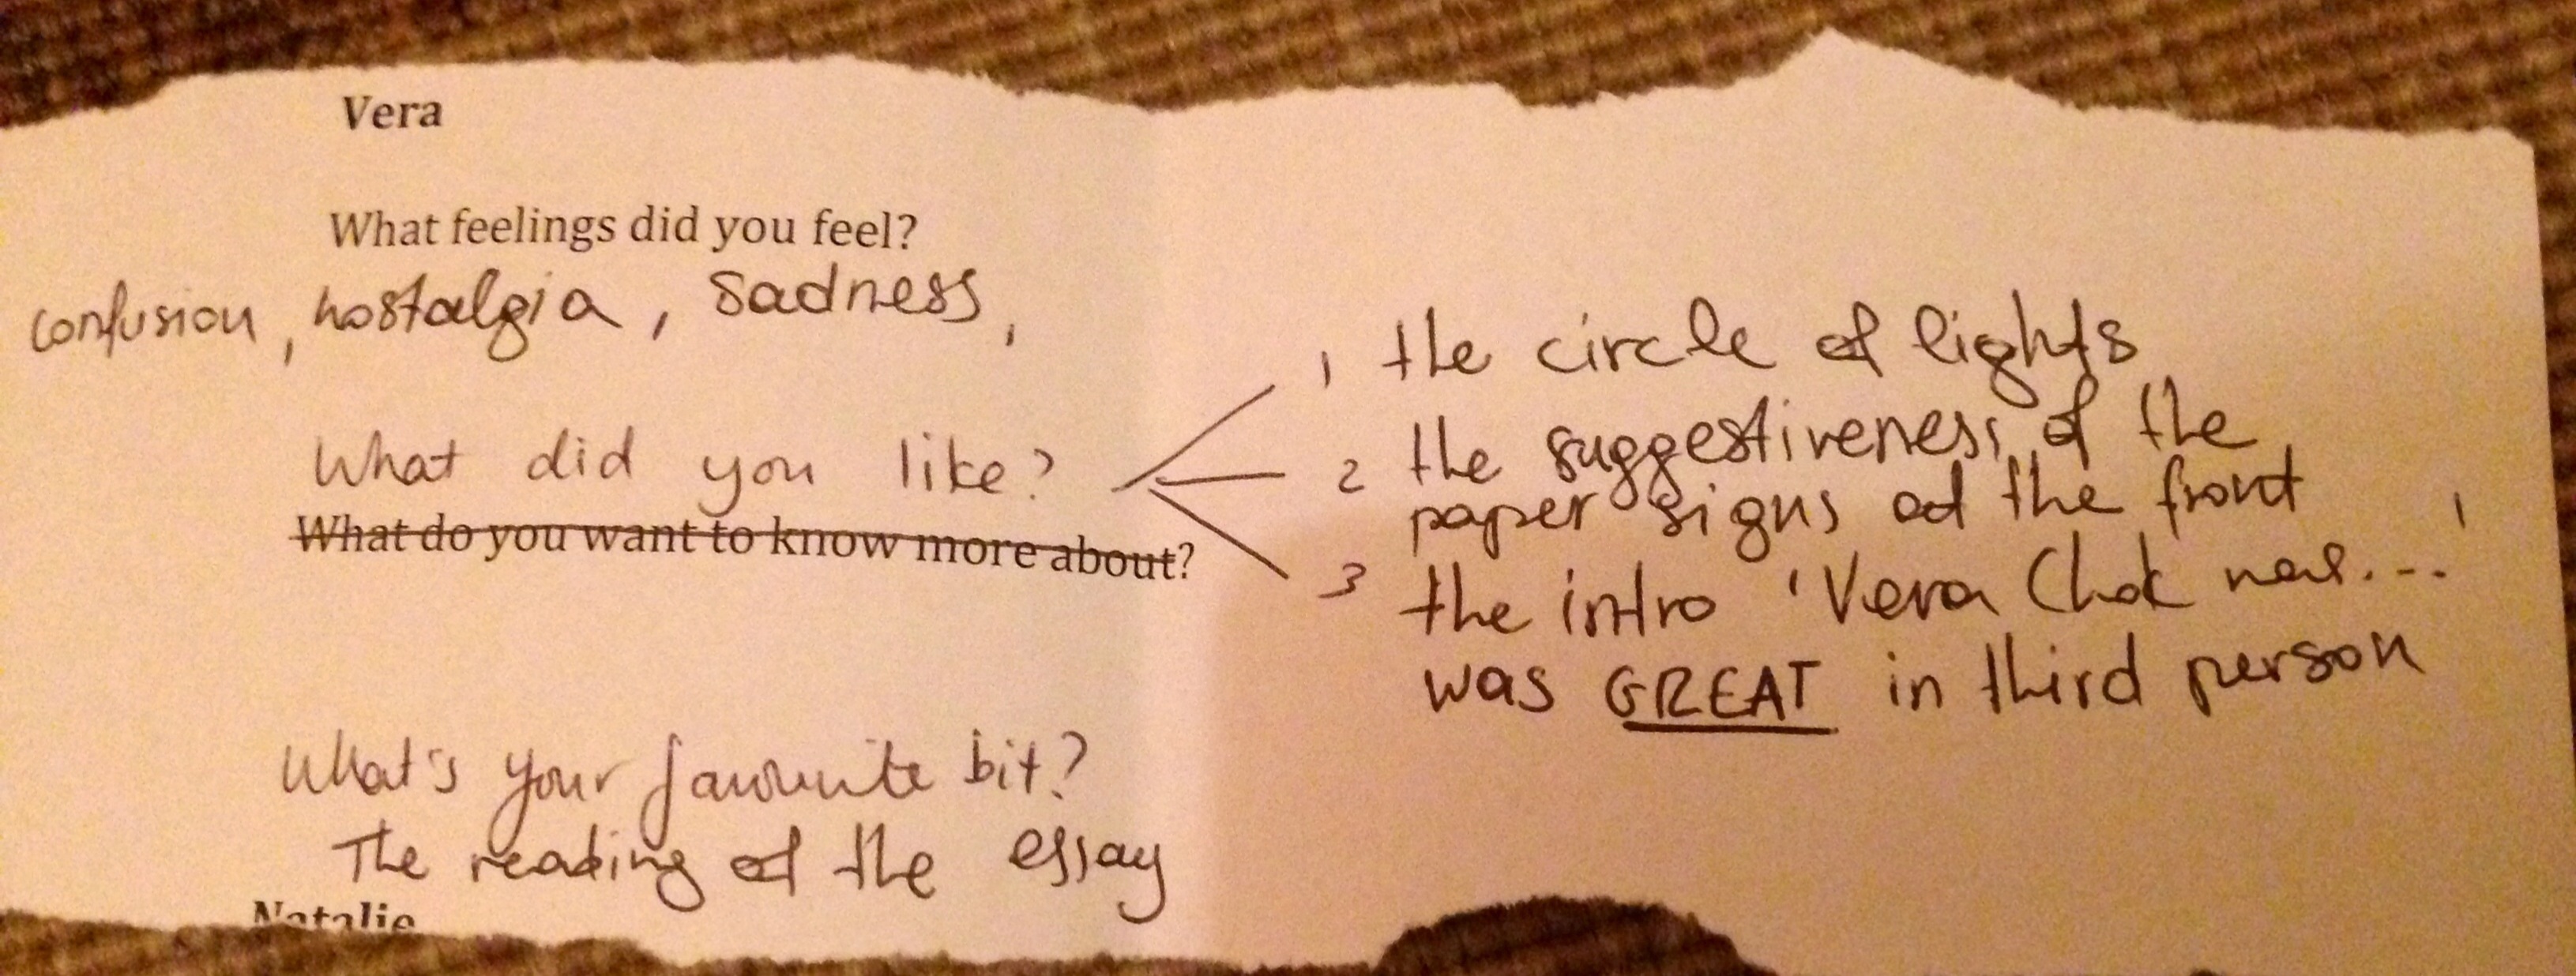 Vera
What feelings did you feel?
confusion, nostalgia, sadness,
What did you like?
What do you want to know more about?
1 the circle of lights
2 the suggestiveness of the
paper signs at the front
3 the intro 'Vera Chok was...'
was GREAT in third person
What's your favourite bit?
The reading of the essay
Natalie